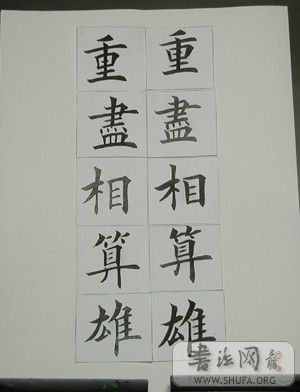 重 重
盡 盡
相 相
算 算
雄 雄
书法网
WWW.SHUFA.ORG